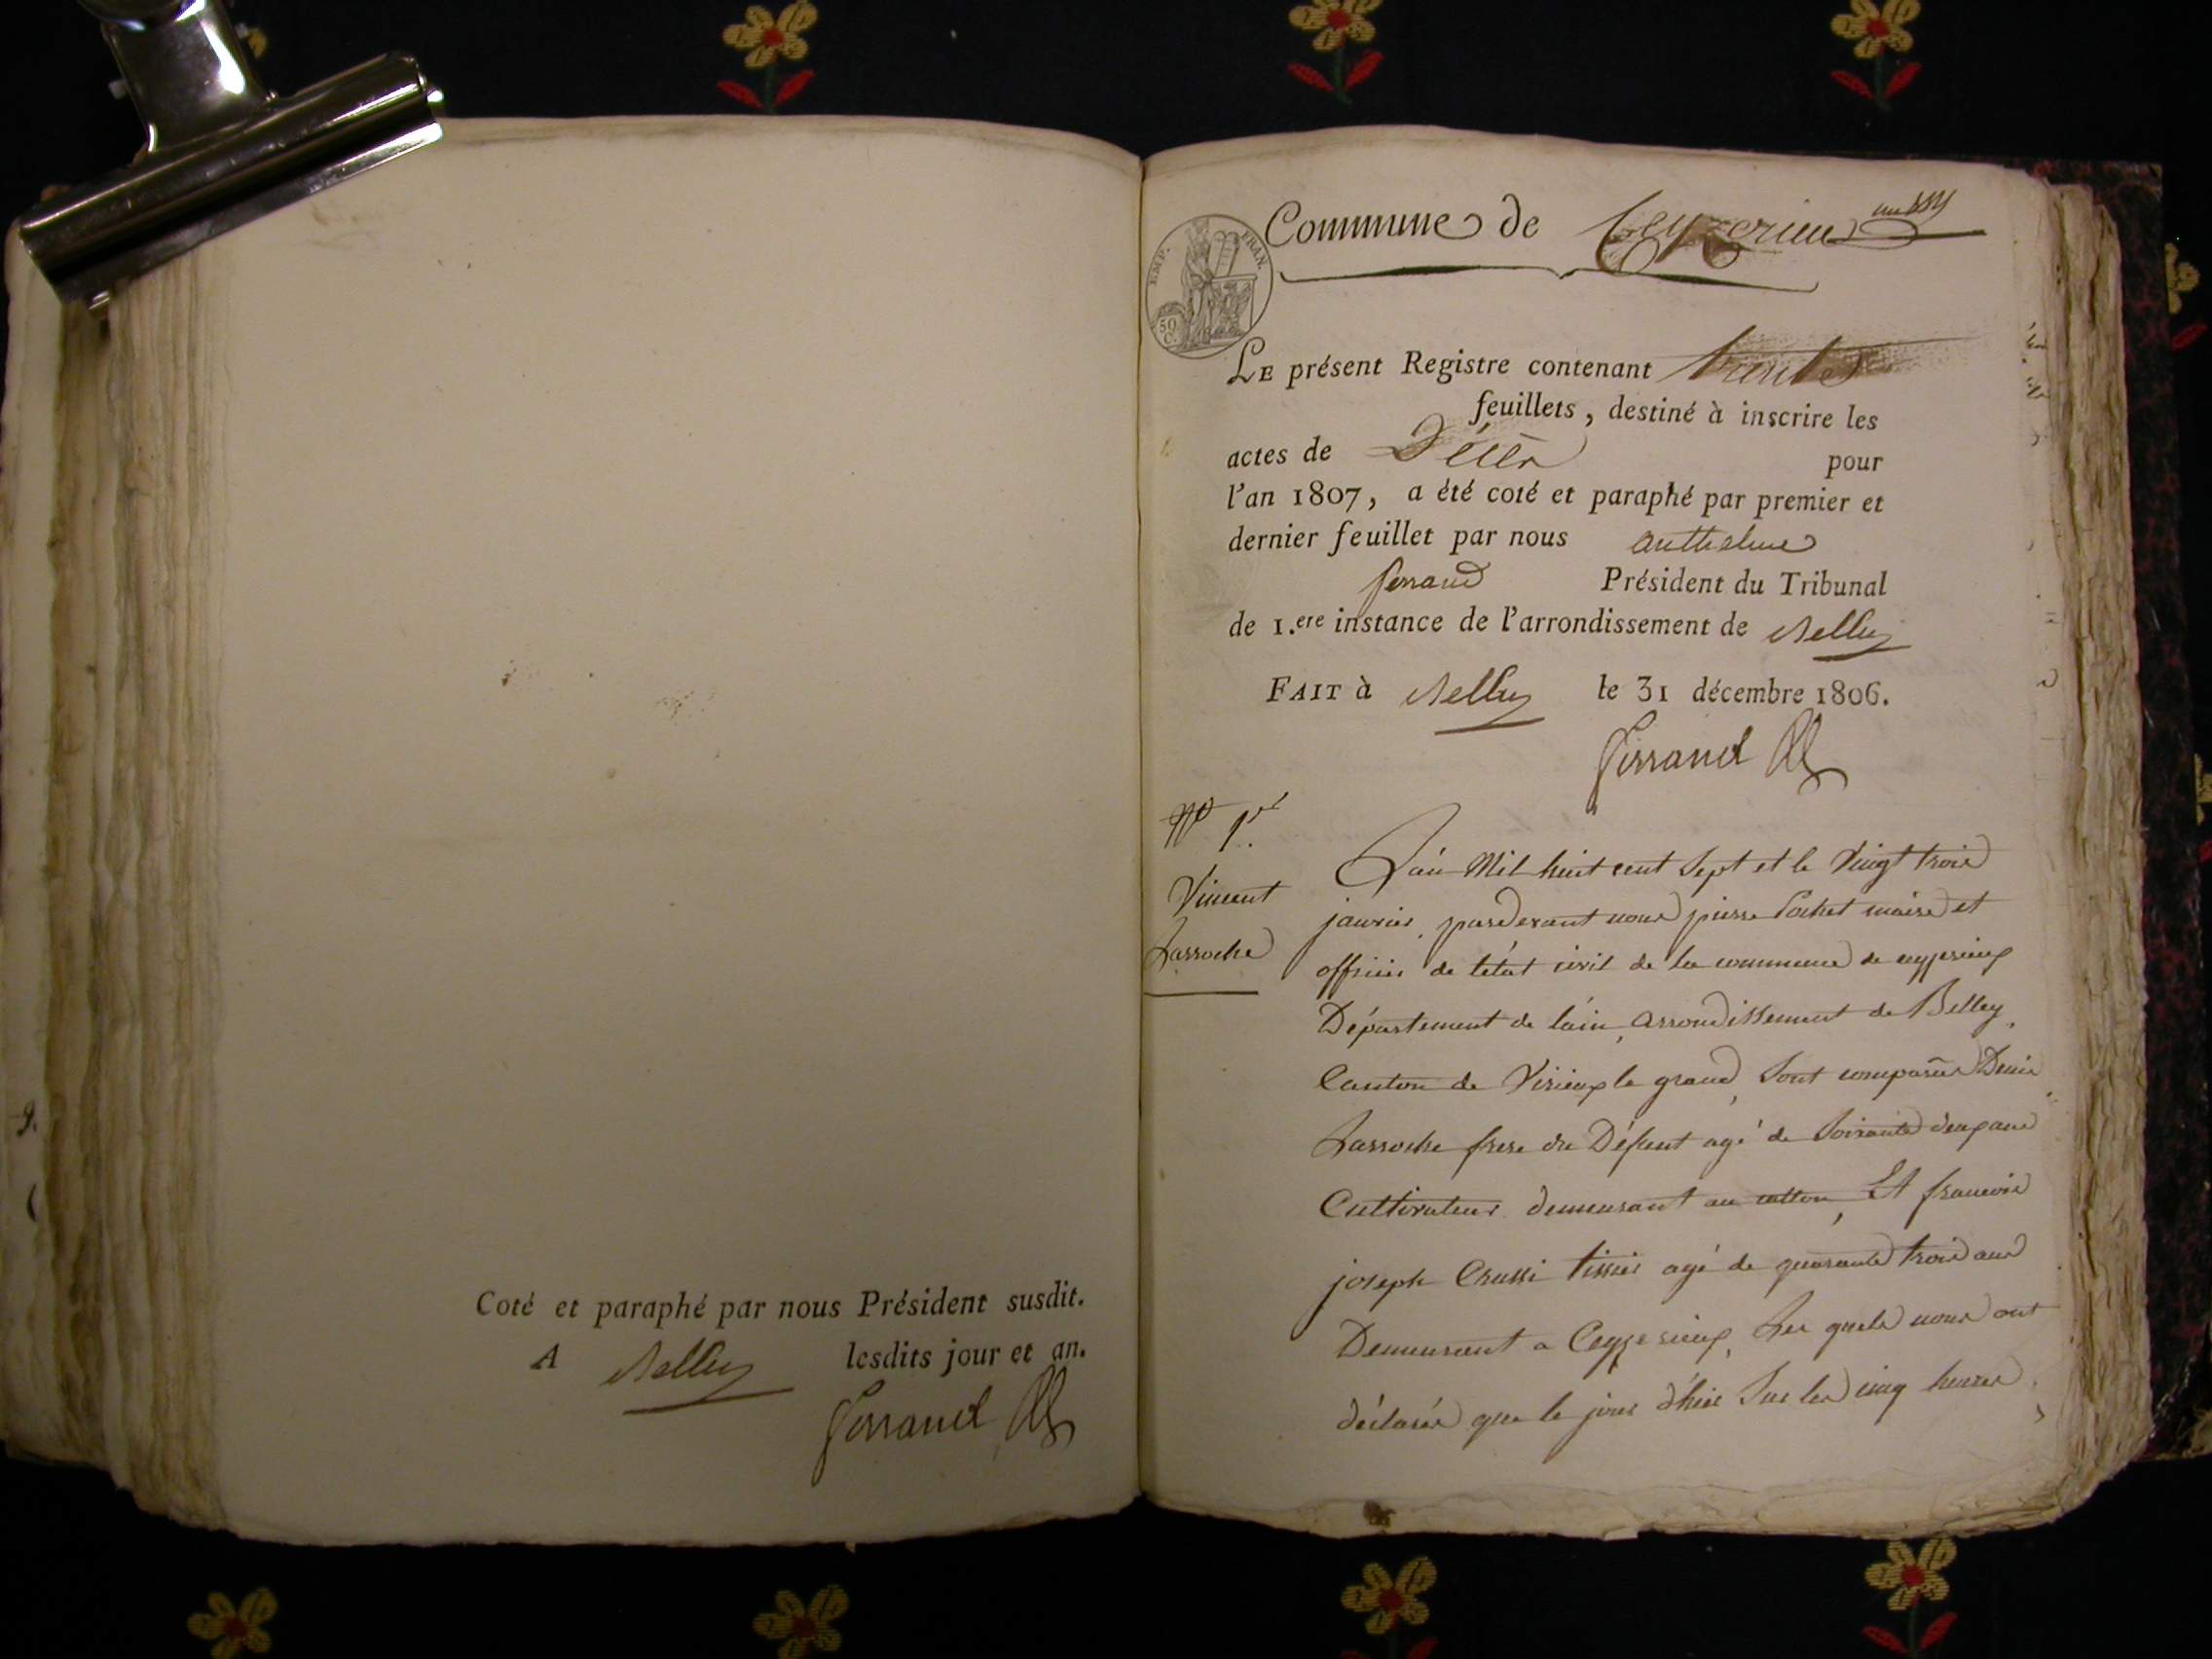 Coté et paraphé par nous Président susdit.
A Belley lesdits jour et an.
Ferrand
Commune de Ceyzerieu
EMP. FRAN.
50 C.
LE présent Registre contenant trente
feuillets, destiné à inscrire les
actes de Décès pour
l'an 1807, a été coté et paraphé par premier et
dernier feuillet par nous anthelme
ferrand Président du Tribunal
de 1.ere instance de l'arrondissement de Belley
FAIT à Belley le 31 décembre 1806.
Ferrand
No 1er
Vincent
Larroche
L'an Mil huit cent Sept et le Vingt trois
janvier, pardevant nous pierre Pochet maire et
officier de l'état civil de la commune de ceyzerieux
Département de l'ain, arrondissement de Belley,
Canton de Virieux le grand, Sont comparus Denis
Larroche frere du Défunt agé de Soixante deux ans
Cultivateur demeurant au Et francois
joseph tissier agé de quarante trois ans
Demeurant a Ceyzerieux, Les quels nous ont
déclarés que le jour d'hier Sur les cinq heures